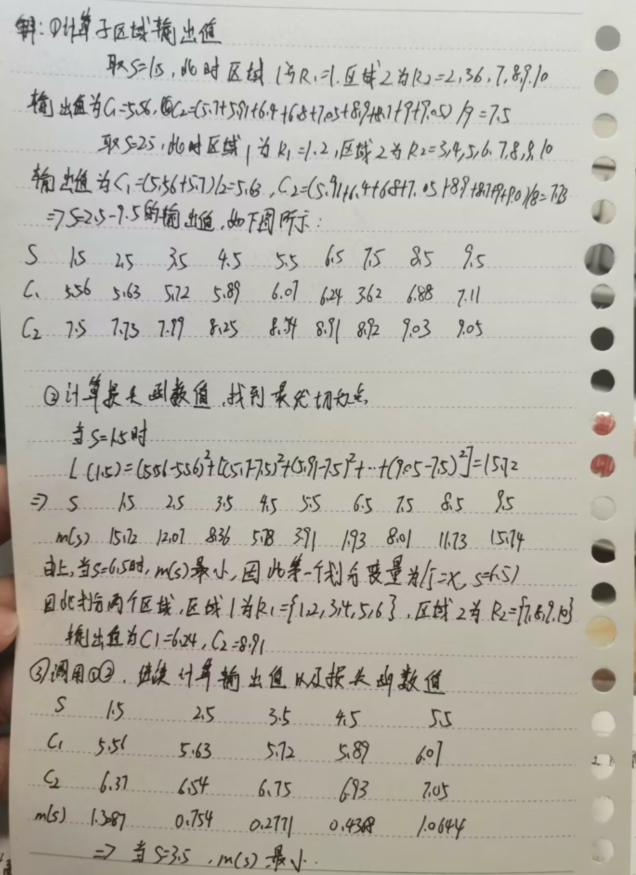 解:①计算子区域输出值
取S=1.5,此时区域1为R₁=1.区域2为R₂=2,3,6,7,8,9,10
输出值为C₁=5.56,C₂=(5.7+5.91+6.4+6.8+7.05+8.9+8.7+9+9.05)/9=7.5
取S=2.5,此时区域1为R₁=1.2,区域2为R₂=3,4,5,6,7,8,9,10
输出值为C₁=(5.56+5.7)/2=5.63,C₂=(5.91+6.4+6.8+7.05+8.9+8.7+9+9.05)/8=7.73
⇒S=2.5-9.5的输出值,如下图所示:
S 1.5 2.5 3.5 4.5 5.5 6.5 7.5 8.5 9.5
C₁ 5.56 5.63 5.72 5.89 6.07 6.24 3.62 6.88 7.11
C₂ 7.5 7.73 7.99 8.25 8.54 8.91 8.92 9.03 9.05
②计算损失函数值,找到最优切分点
当S=1.5时
L(1.5)=(5.56-5.56)²+[(5.7-7.5)²+(5.91-7.5)²+…+(9.05-7.5)²]=15.72
⇒ S 1.5 2.5 3.5 4.5 5.5 6.5 7.5 8.5 9.5
m(s) 15.72 12.07 8.36 5.78 3.91 1.93 8.01 11.73 15.74
由上,当S=6.5时,m(s)最小,因此第一个划分变量为(j=x,s=6.5)
因此划分两个区域,区域1为R₁={1,2,3,4,5,6},区域2为R₂={7,8,9,10}
输出值为C₁=6.24,C₂=8.91
③调用①②,继续计算输出值以及损失函数值
S 1.5 2.5 3.5 4.5 5.5
C₁ 5.56 5.63 5.72 5.89 6.07
C₂ 6.37 6.54 6.75 6.93 7.05
m(s) 1.3087 0.754 0.2771 0.4368 1.0644
⇒当S=3.5,m(s)最小.